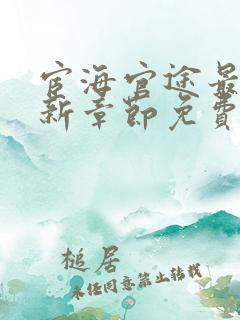 宦海官途最
新章節免費
槌居
未经同意禁止转载